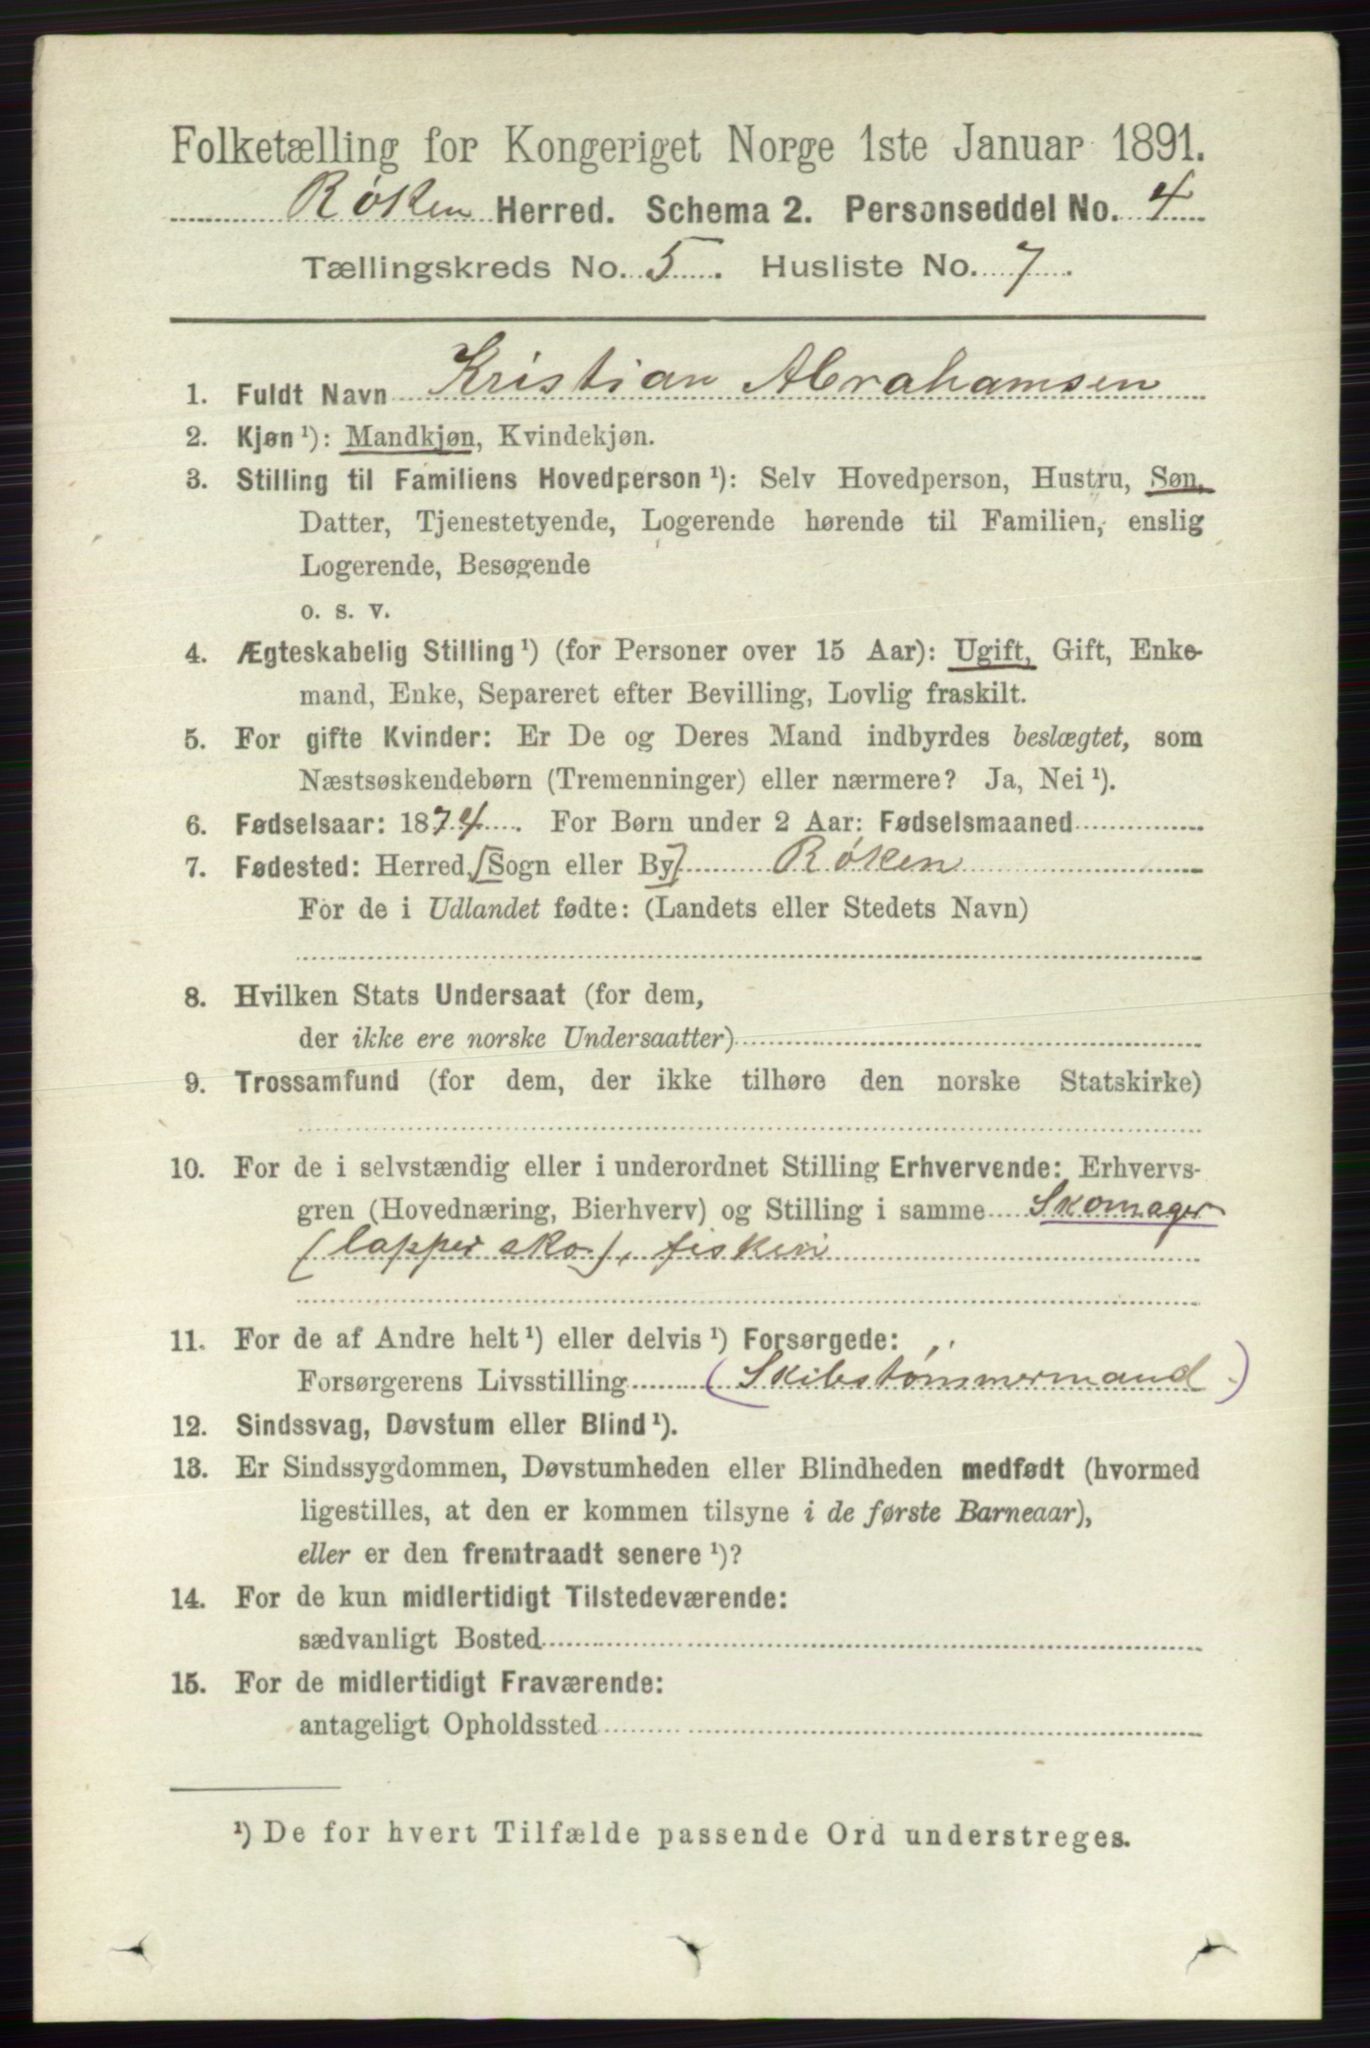 Folketælling for Kongeriget Norge 1ste Januar 1891.
Røken Herred. Schema 2. Personseddel No. 4
Tællingskreds No. 5. Husliste No. 7.
1. Fuldt Navn Kristian Abrahamsen
2. Kjøn ¹): Mandkjøn, Kvindekjøn.
3. Stilling til Familiens Hovedperson ¹): Selv Hovedperson, Hustru, Søn,
Datter, Tjenestetyende, Logerende hørende til Familien, enslig
Logerende, Besøgende
o. s. v.
4. Ægteskabelig Stilling ¹) (for Personer over 15 Aar): Ugift, Gift, Enke-
mand, Enke, Separeret efter Bevilling, Lovlig fraskilt.
5. For gifte Kvinder: Er De og Deres Mand indbyrdes beslægtet, som
Næstsøskendebørn (Tremenninger) eller nærmere? Ja, Nei ¹).
6. Fødselsaar: 1874. For Børn under 2 Aar: Fødselsmaaned
7. Fødested: Herred, [Sogn eller By] Røken
For de i Udlandet fødte: (Landets eller Stedets Navn)
8. Hvilken Stats Undersaat (for dem,
der ikke ere norske Undersaatter)
9. Trossamfund (for dem, der ikke tilhøre den norske Statskirke)
10. For de i selvstændig eller i underordnet Stilling Erhvervende: Erhvervs-
gren (Hovednæring, Bierhverv) og Stilling i samme Skomager
(lapper sko), fiskeri
11. For de af Andre helt ¹) eller delvis ¹) Forsørgede:
Forsørgerens Livsstilling (Skibstømmermand)
12. Sindssvag, Døvstum eller Blind ¹).
13. Er Sindssygdommen, Døvstumheden eller Blindheden medfødt (hvormed
ligestilles, at den er kommen tilsyne i de første Barneaar),
eller er den fremtraadt senere ¹)?
14. For de kun midlertidigt Tilstedeværende:
sædvanligt Bosted
15. For de midlertidigt Fraværende:
antageligt Opholdssted
¹) De for hvert Tilfælde passende Ord understreges.